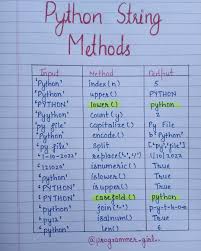 Python String
Methods
Input Method Output
'Python' index(n) 5
'Python' upper() PYTHON
'PYTHON' lower() python
'Pythony' count(y) 2
'py file' capitalize() Py file
'Python' encode() b'Python'
'py file' split() ['py','file']
'1-10-2022' replace('-','/') 1/10/2022
'123' isnumeric() True
'python' islower() True
'PYTHON' isupper() True
'PYTHON' casefold() python
'python' join('-') p-y-t-h-o-n
'py12' isalnum() True
'python' len() 6
@programmer_girl_